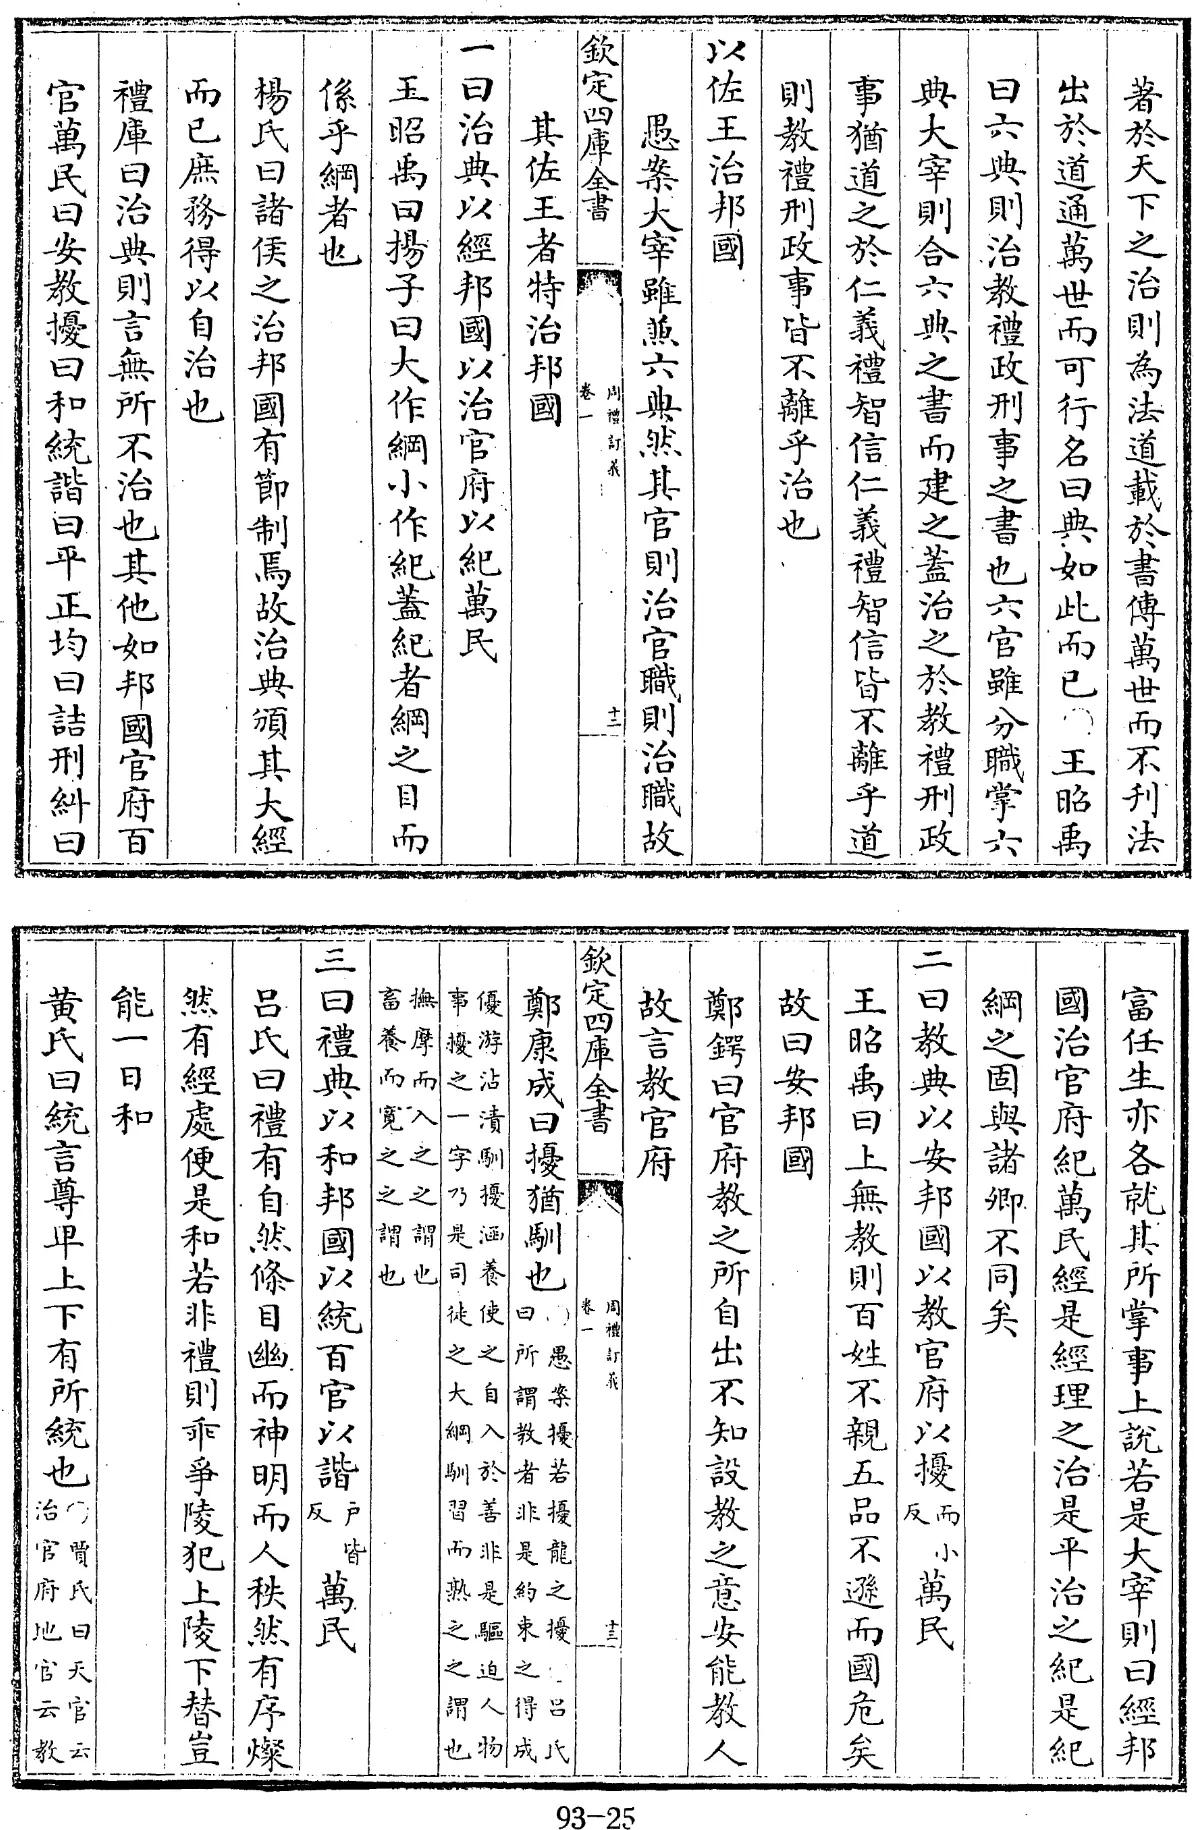 著於天下之治則為法道載於書傳萬世而不刋法
出於道通萬世而可行名曰典如此而已〇王昭禹
曰六典則治教禮政刑事之書也六官雖分職掌六
典大宰則合六典之書而建之蓋治之於教禮刑政
事猶道之於仁義禮智信仁義禮智信皆不離乎道
則教禮刑政事皆不離乎治也
以佐王治邦國
愚案大宰雖兼六典然其官則治官職則治職故
欽定四庫全書
周禮訂義
卷一
十二
其佐王者特治邦國
一曰治典以經邦國以治官府以紀萬民
王昭禹曰揚子曰大作綱小作紀蓋紀者綱之目而
係乎綱者也
楊氏曰諸侯之治邦國有節制焉故治典頒其大經
而已庶務得以自治也
禮庫曰治典則言無所不治也其他如邦國官府百
官萬民曰安教擾曰和統諧曰平正均曰詰刑糾曰
富任生亦各就其所掌事上說若是大宰則曰經邦
國治官府紀萬民經是經理之治是平治之紀是紀
綱之固與諸卿不同矣
二曰教典以安邦國以教官府以擾而小反萬民
王昭禹曰上無教則百姓不親五品不遜而國危矣
故曰安邦國
鄭鍔曰官府教之所自出不知設教之意安能教人
故言教官府
欽定四庫全書
周禮訂義
卷一
十三
鄭康成曰擾猶馴也〇愚案擾若擾龍之擾〇呂氏
曰所謂教者非是約束之得成
優游沾漬馴擾涵養使之自入於善非是驅迫人物
事擾之一字乃是司徒之大綱馴習而熟之之謂也
撫摩而入之之謂也
畜養而寛之之謂也
三曰禮典以和邦國以統百官以諧戶皆反萬民
呂氏曰禮有自然條目幽而神明而人秩然有序燦
然有經處便是和若非禮則乖爭陵犯上陵下替豈
能一日和
黄氏曰統言尊卑上下有所統也〇賈氏曰天官云
治官府地官云教
93-25